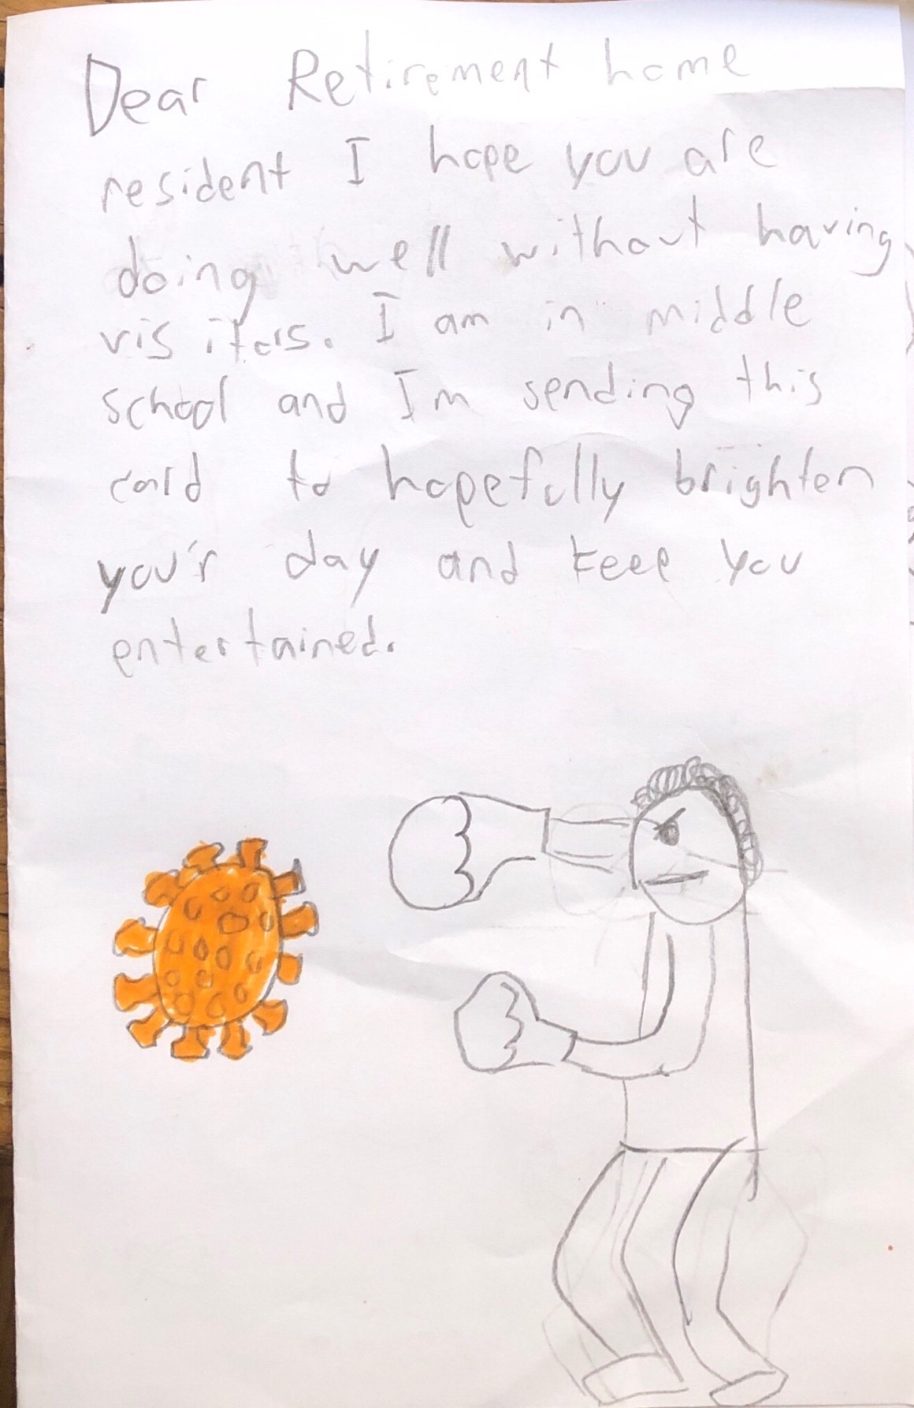 Dear Retirement home
resident I hope you are
doing well without having
visitors. I am in middle
school and Im sending this
card to hopefully brighten
you'r day and keep you
entertained.